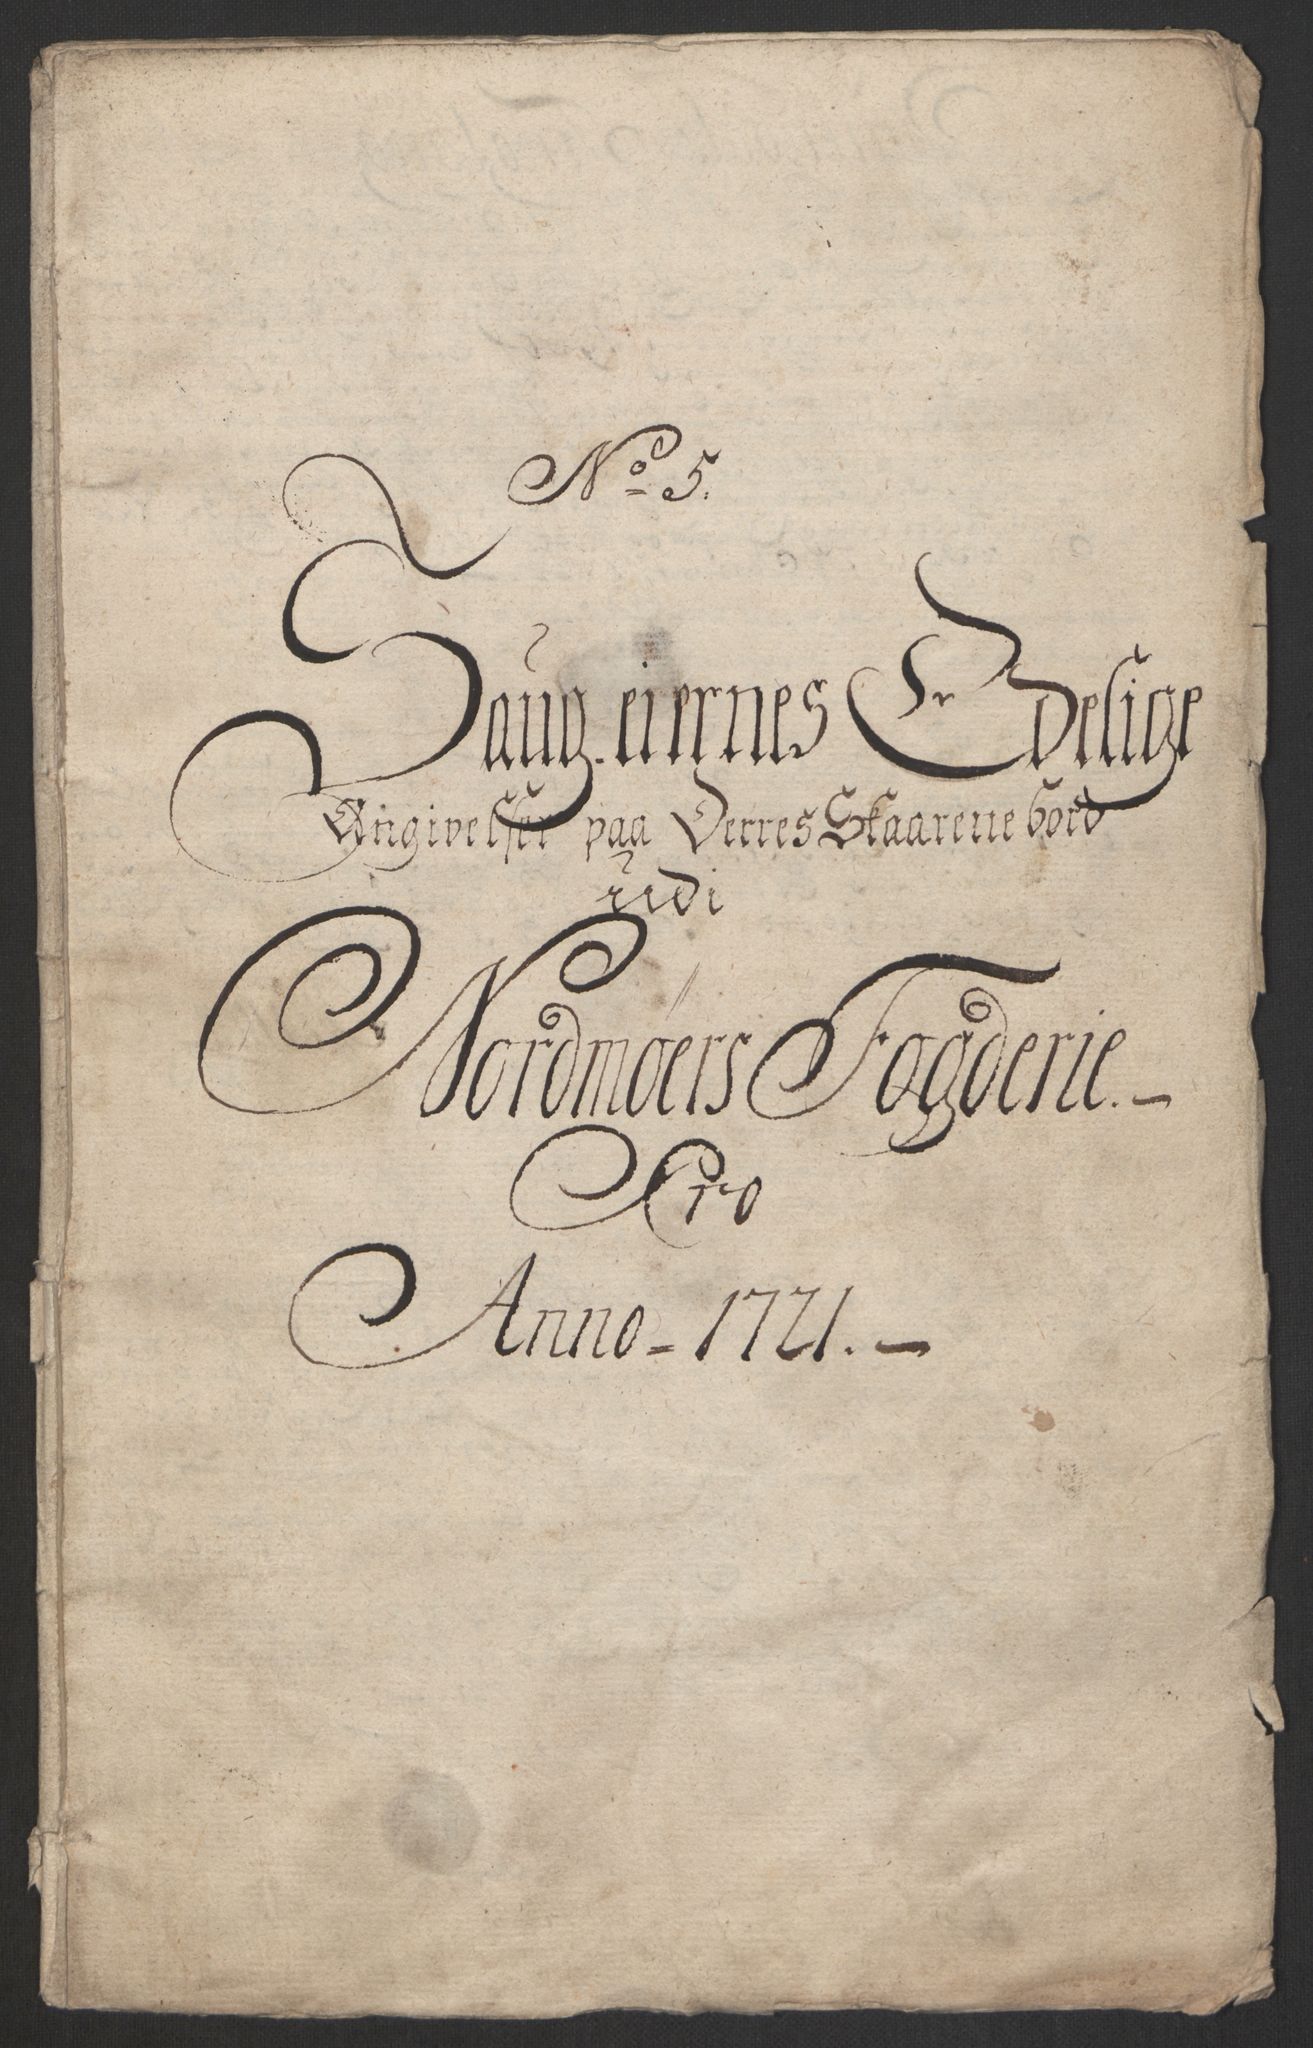 No 5.
Saug-eiernes Edelige
Angivelser paa Derres Skaarene bord
udi
Nordmøers Fogderie.-
Pro
Anno-1721.-